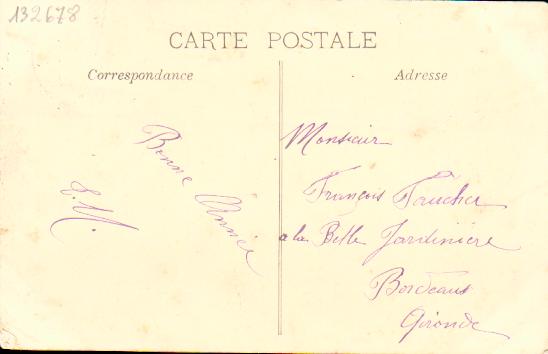 132678
CARTE POSTALE
Correspondance
Adresse
Bonne Année
E.M.
Monsieur
François Faucher
a la Belle Jardinière
Bordeaux
Gironde